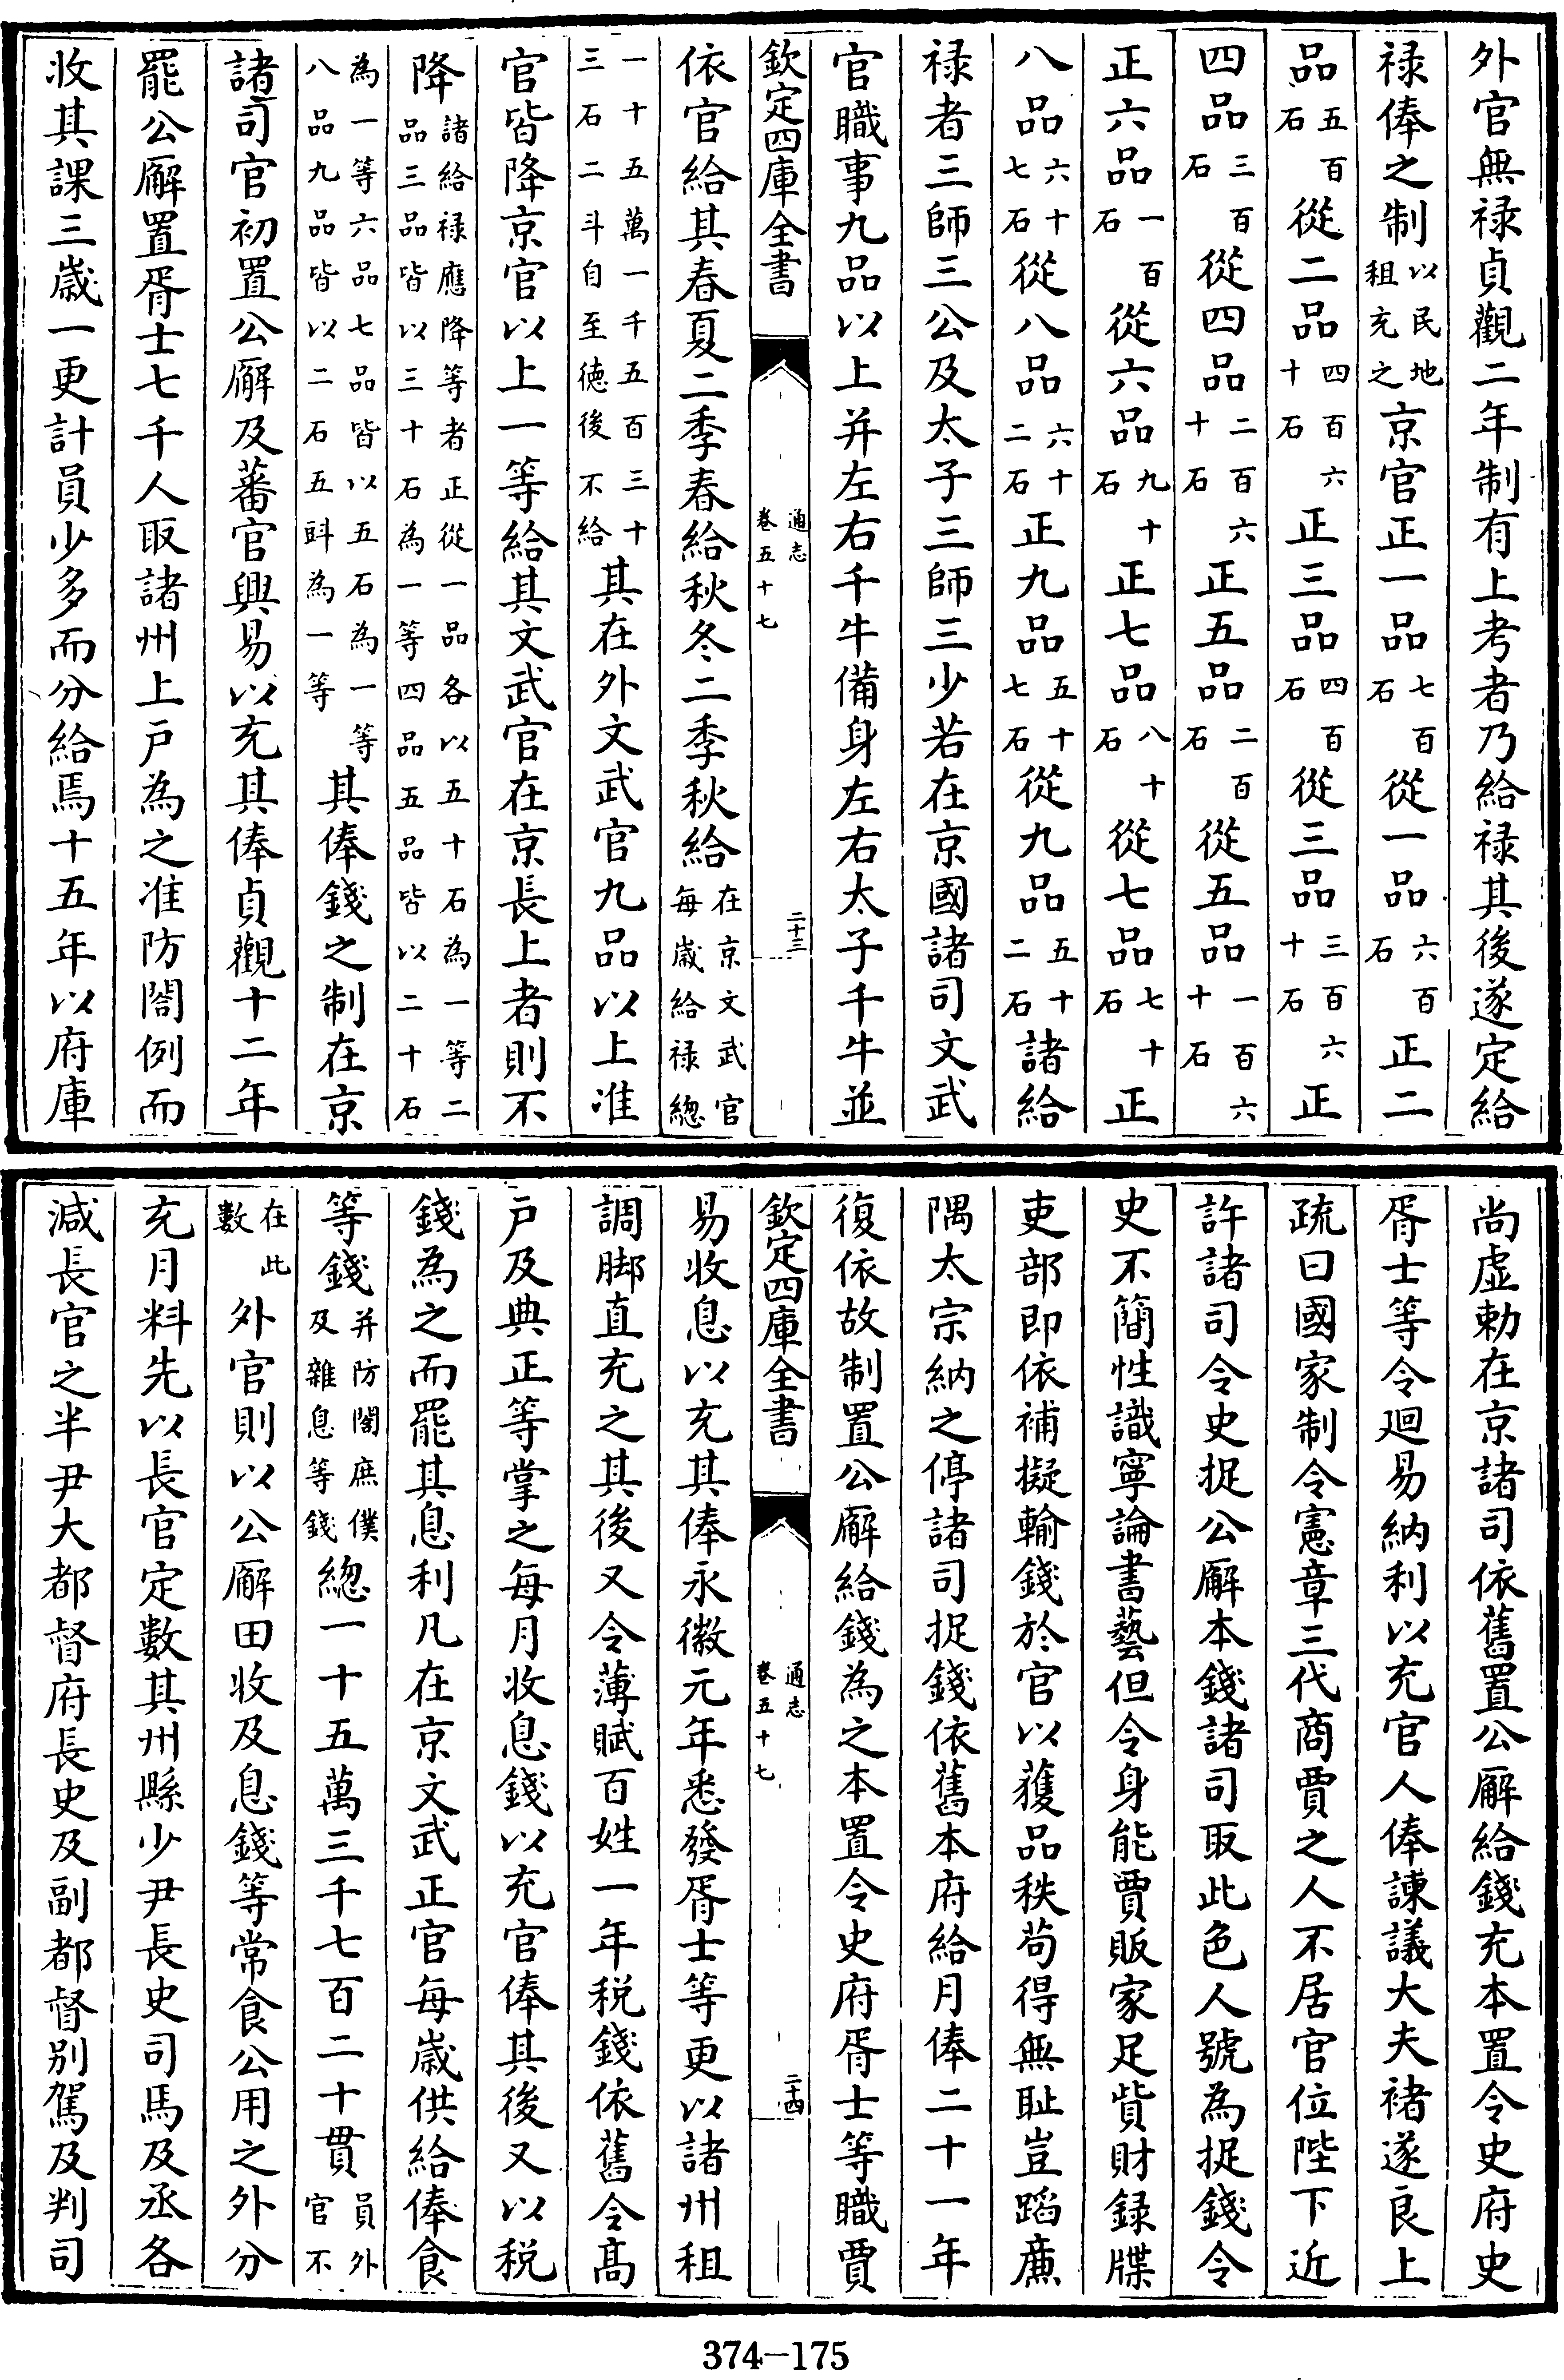 外官無禄貞觀二年制有上考者乃給禄其後遂定給
禄俸之制以民地租充之京官正一品七百石從一品六百石正二
品五百石從二品四百六十石正三品四百石從三品三百六十石正
四品三百石從四品二百六十石正五品二百石從五品一百六十石
正六品一百石從六品九十石正七品八十石從七品七十石正
八品六十七石從八品六十二石正九品五十七石從九品五十二石諸給
禄者三師三公及太子三師三少若在京國諸司文武
官職事九品以上并左右千牛備身左右太子千牛並
欽定四庫全書 通志卷五十七 二十三
依官給其春夏二季春給秋冬二季秋給在京文武官每歲給禄總
一十五萬一千五百三十三石二斗自至德後不給其在外文武官九品以上准
官皆降京官以上一等給其文武官在京長上者則不
降諸給禄應降等者正從一品各以五十石為一等二品三品皆以三十石為一等四品五品皆以二十石
為一等六品七品皆以五石為一等八品九品皆以二石五㪷為一等其俸錢之制在京
諸司官初置公廨及蕃官興易以充其俸貞觀十二年
罷公廨置胥士七千人取諸州上戸為之准防閤例而
收其課三歲一更計員少多而分給焉十五年以府庫
尚虛勅在京諸司依舊置公廨給錢充本置令史府史
胥士等令廻易納利以充官人俸諫議大夫褚遂良上
疏曰國家制令憲章三代商賈之人不居官位陛下近
許諸司令史捉公廨本錢諸司取此色人號為捉錢令
史不簡性識寧論書藝但令身能賈販家足貲財録牒
吏部即依補擬輸錢於官以獲品秩苟得無耻豈蹈廉
隅太宗納之停諸司捉錢依舊本府給月俸二十一年
復依故制置公廨給錢為之本置令史府胥士等職賈
欽定四庫全書 通志卷五十七 二十四
易收息以充其俸永徽元年悉發胥士等更以諸州租
調脚直充之其後又令薄賦百姓一年税錢依舊令髙
戸及典正等掌之每月收息錢以充官俸其後又以税
錢為之而罷其息利凡在京文武正官每歲供給俸食
等錢并防閤庶僕及雜息等錢總一十五萬三千七百二十貫員外官不
在此數外官則以公廨田收及息錢等常食公用之外分
充月料先以長官定數其州縣少尹長史司馬及丞各
減長官之半尹大都督府長史及副都督别駕及判司
374-175